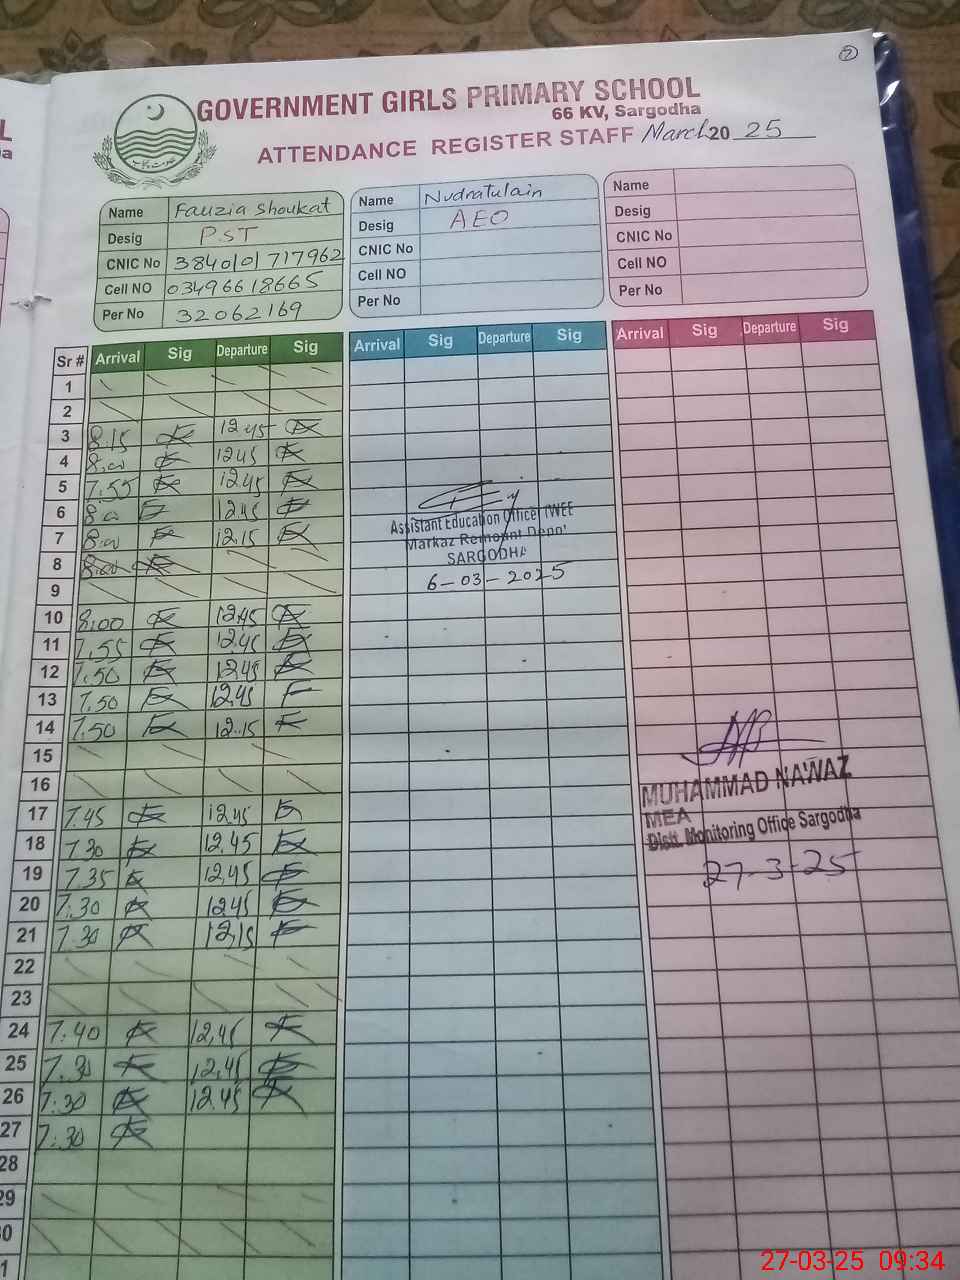 2
GOVERNMENT GIRLS PRIMARY SCHOOL
66 KV, Sargodha
ATTENDANCE REGISTER STAFF March 2025
Name Fauzia Shoukat
Desig P.ST
CNIC No 3840101717962
Cell NO 03496618665
Per No 32062169
Name Nudratulain
Desig AEO
CNIC No
Cell NO
Per No
Name
Desig
CNIC No
Cell NO
Per No
Sr # Arrival Sig Departure Sig Arrival Sig Departure Sig Arrival Sig Departure Sig
1
2
3 8.15 12.45
4 8.00 12.45
5 7.55 12.45
6 8.00 12.45
7 8.00 12.15
8 8.00
9
10 8.00 12.45
11 7.55 12.45
12 7.50 12.45
13 7.50 12.45
14 7.50 12.15
15
16
17 7.45 12.45
18 7.30 12.45
19 7.35 12.45
20 7.30 12.45
21 7.30 12.15
22
23
24 7.40 12.45
25 7.30 12.45
26 7:30 12.45
27 7:30
28
29
30
Assistant Education Officer (WEE
Markaz Remount Depot
SARGODHA
6-03-2025
MUHAMMAD NAWAZ
MEA
Distt. Monitoring Office Sargodha
27-3-25
27-03-25 09:34